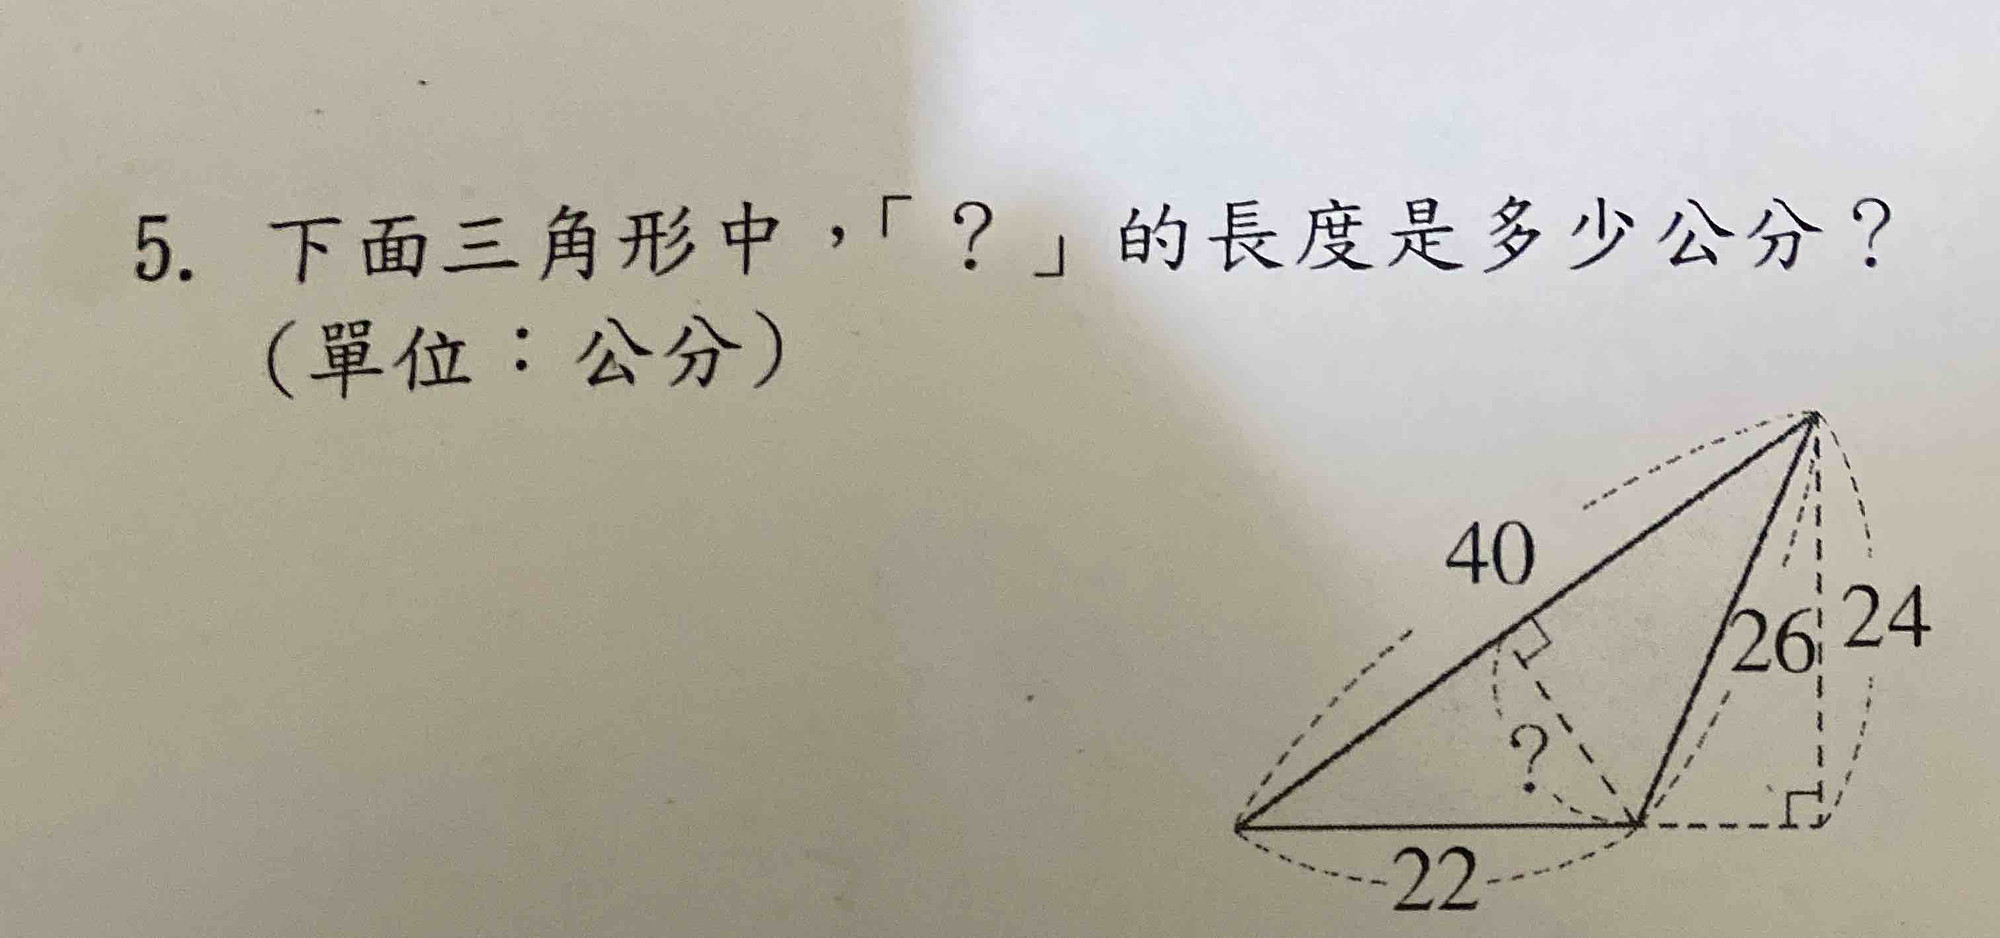 5. 下面三角形中,「?」的長度是多少公分?
(單位:公分)
40
26
24
?
22